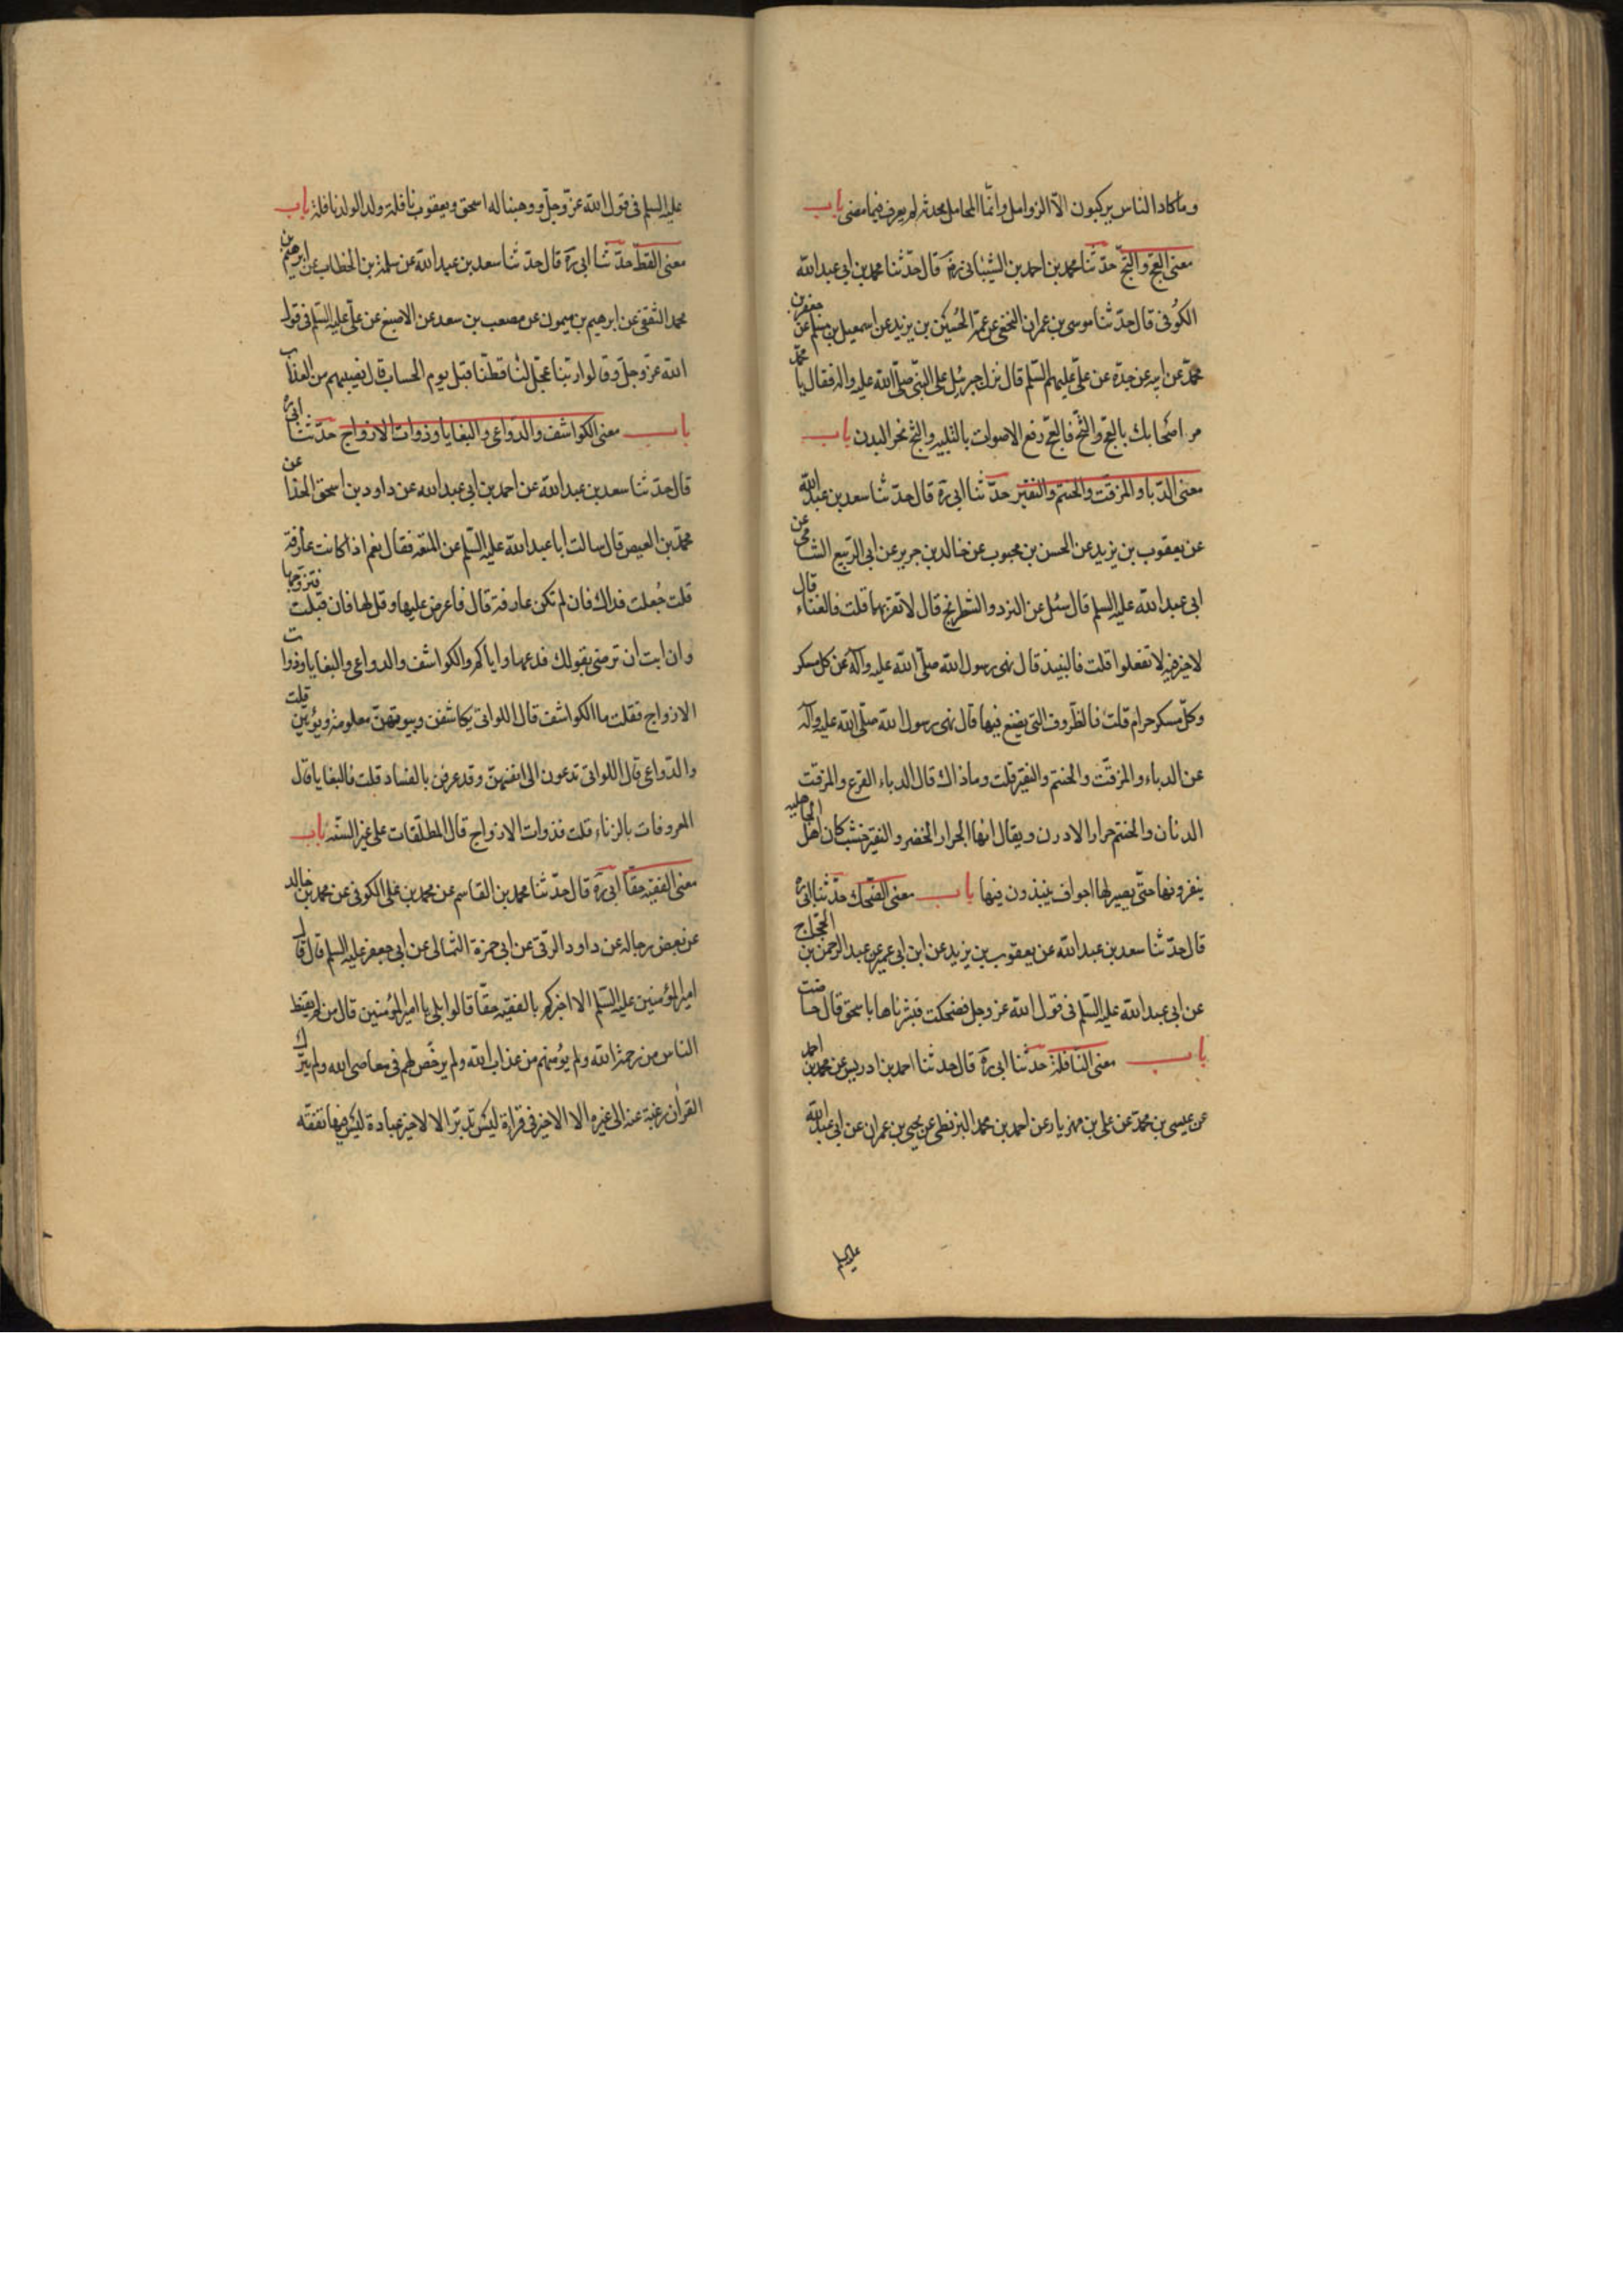 وما كاد الناس يركبون الا الزوامل وانّما المحامل محدثه لم يعرف فيما مضى باب
معنى العج والثج حدّثنا محمد بن احمد بن الشيبانى رضه قال حدّثنا محمد بن ابى عبد الله
الكوفى قال حدّثنا موسى بن عمران النخعى عن عمّه الحسين بن يزيد عن اسمعيل بن مسلم عن جعفر بن
محمّد عن ابيه عن جدّه عن علىّ عليهم السّلم قال نزل جبرئيل على النبى صلّى الله عليه واله فقال يا محمّد
مر اصحابك بالعج والثّج فالعجّ رفع الاصوات بالتلبيه والثج نحر البدن باب
معنى الدّبا والمزفت والحنتم والنقير حدّثنا ابى ره قال حدّثنا سعد بن عبد الله
عن يعقوب بن يزيد عن الحسن بن محبوب عن خالد بن جرير عن ابى الربيع الشامى عن
ابى عبد الله عليه السلم قال سئل عن النرد والشطرنج قال لا تقربهما قلت فالغناء قال
لا خير فيه لا تفعلوا قلت فالنبيذ قال نهى رسول الله صلّى الله عليه وآله عن كل مسكر
وكلّ مسكر حرام قلت فالظّروف التى يصنع فيها قال نهى رسول الله صلّى الله عليه وآله
عن الدباء والمزفّت والحنتم والنقير قلت وما ذاك قال الدباء القرع والمزفت
الدنان والحنتم جرار الادرن ويقال انها الجرار الخضر والنقير خشب كان اهل الجاهليه
ينقرونها حتّى يصير لها اجواف ينبذون فيها باب معنى الضّحك حدّثنا ابى ره
قال حدّثنا سعد بن عبد الله عن يعقوب بن يزيد عن ابن ابى عمير عن عبد الرحمن بن الحجّاج
عن ابى عبد الله عليه السّلم فى قول الله عز وجل فضحكت فبشرناها باسحق قال حاضت
باب معنى النّافلة حدّثنا ابى ره قال حدثنا احمد بن ادريس عن محمد بن احمد
عن عيسى بن محمّد عن على بن مهزيار عن احمد بن محمد البزنطى عن يحيى بن عمران عن ابى عبد الله
عليه السلم
عليه السلم فى قول الله عزّ وجلّ ووهبنا له اسحق ويعقوب نافلة ولد الولد نافلة باب
معنى القطّ حدّثنا ابى ره قال حدّثنا سعد بن عبد الله عن سلمة بن الخطاب عن ابرهيم بن
محمد الثقفى عن ابرهيم بن ميمون عن مصعب بن سعد عن الاصبغ عن علىّ عليه السّلم فى قول
الله عزّ وجلّ وقالوا ربّنا عجّل لنا قطّنا قبل يوم الحساب قال نصيبهم من العذاب
باب معنى الكواشف والدّواعى والبغايا وذوات الازواج حدّثنا ابى ره
قال حدّثنا سعد بن عبد الله عن احمد بن ابى عبد الله عن داود بن اسحق الحذا عن
محمّد بن العيص قال سالت ابا عبد الله عليه السّلم عن المتعه فقال نعم اذا كانت عارفة
قلت جُعلت فداك فان لم تكن عارفة قال فاعرض عليها وقل لها فان قبلت فتزوجها
وان ابت ان ترضى بقولك فدعها واياكم والكواشف والدواعى والبغايا وذوات
الازواج فقلت ما الكواشف قال اللواتى يكاشفن وبيوتهنّ معلومة ويؤتين قلت
والدّواعى قال اللواتى تدعون الى انفسهنّ وقد عرفن بالفساد قلت فالبغايا قال
المعروفات بالزناء قلت فذوات الازواج قال المطلّقات على غير السنّه باب
معنى الفقيه حقّا ابى ره قال حدّثنا محمد بن القاسم عن محمد بن على الكوفى عن محمد بن خالد
عن بعض رجاله عن داود الرقى عن ابى حمزة الثمالى عن ابى جعفر عليه السلم قال قال
امير المؤمنين عليه السّلم الا اخبركم بالفقيه حقّا قالوا بلى يا امير المؤمنين قال من لم يقنط
الناس من رحمة الله ولم يؤمنهم من عذاب الله ولم يرخّص لهم فى معاصى الله ولم يترك
القرآن رغبة عنه الى غيره الا لا خير فى قراءة ليس تدبّر الا لا خير عبادة ليس فيها تفقّه